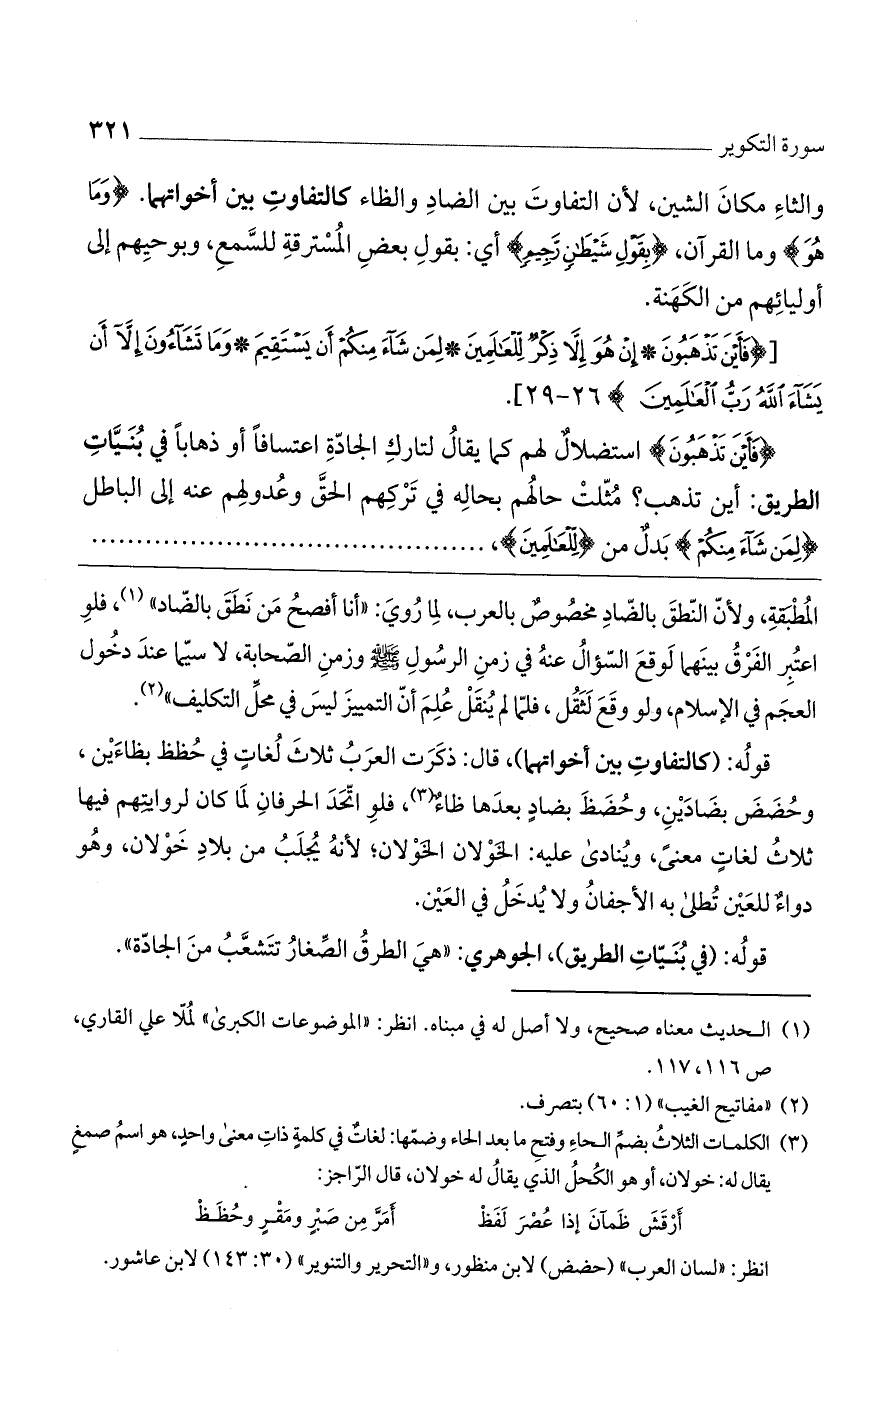 سورة التكوير ٣٢١
والثاءِ مكانَ الشين، لأن التفاوتَ بين الضادِ والظاء كالتفاوتِ بين أخواتهما. ﴿وَمَا
هُوَ﴾ وما القرآن، ﴿بِقَوْلِ شَيْطَٰنٍ رَّجِيمٍ﴾ أي: بقولِ بعضِ المُسْترقةِ للسَّمعِ، وبوحيِهم إلى
أوليائِهم من الكَهَنة.
[﴿فَأَيْنَ تَذْهَبُونَ * إِنْ هُوَ إِلَّا ذِكْرٌ لِّلْعَٰلَمِينَ * لِمَن شَآءَ مِنكُمْ أَن يَسْتَقِيمَ * وَمَا تَشَآءُونَ إِلَّآ أَن
يَشَآءَ ٱللَّهُ رَبُّ ٱلْعَٰلَمِينَ ﴾ ٢٦-٢٩].
﴿فَأَيْنَ تَذْهَبُونَ﴾ استضلالٌ لهم كما يقالُ لتاركِ الجادّةِ اعتسافاً أو ذهاباً في بُنَيَّاتِ
الطريق: أين تذهب؟ مُثّلتْ حالُهم بحالِه في تَرْكِهم الحقَّ وعُدولهِم عنه إلى الباطل
﴿لِمَن شَآءَ مِنكُمْ﴾ بَدلٌ من ﴿لِّلْعَٰلَمِينَ﴾، ..........................................
المُطْبَقةِ، ولأنّ النّطقَ بالضّادِ مخصُوصٌ بالعرب، لِما رُويَ: «أنا أفصحُ مَن نَطَقَ بالضّاد» (١)، فلوِ
اعتُبِر الفَرْقُ بينَهما لَوقعَ السّؤالُ عنهُ في زمنِ الرسُولِ ﷺ وزمنِ الصّحابة، لا سيّما عندَ دخُول
العجَم في الإسلام، ولو وقعَ لَنُقل، فلمّا لم يُنقَلْ عُلِمَ أنّ التمييزَ ليسَ في محلِّ التكليف»(٢).
قولُه: (كالتفاوتِ بين أخواتهما)، قال: ذكَرَت العربُ ثلاثَ لُغاتٍ في حُظظ بظاءَيْن ،
وحُضَضَ بضَادَيْنِ، وحُضَظَ بضادٍ بعدَها ظاءٌ(٣)، فلوِ اتّحَدَ الحرفانِ لَما كان لروايتِهم فيها
ثلاثُ لغاتٍ معنىً، ويُنادىٰ عليه: الخَوْلان الخَوْلان؛ لأنهُ يُجلَبُ من بلادِ خَوْلان، وهُو
دواءٌ للعَيْن تُطلىٰ به الأجفانُ ولا يُدخَلُ في العَيْن.
قولُه: (في بُنَيّاتِ الطريق)، الجوهري: «هيَ الطرقُ الصِّغارُ تتَشعَّبُ منَ الجادّة».
(١) الـحديث معناه صحيح، ولا أصل له في مبناه. انظر: «الموضوعات الكبرىٰ» لمُلّا علي القاري،
ص ١١٦، ١١٧.
(٢) «مفاتيح الغيب» (١: ٦٠) بتصرف.
(٣) الكلمـات الثلاثُ بضمِّ الـحاءِ وفتحِ ما بعد الحاء وضمّها: لغاتٌ في كلمةٍ ذاتِ معنىٰ واحدٍ، هو اسمُ صمغٍ
يقال له: خولان، أو هو الكُحلُ الذي يقالُ له خولان، قال الرّاجز:
أَرْقَشَ ظَمآنَ إذا عُصْرَ لَفَظْ أَمَرَّ مِن صَبْرٍ ومَقْـرٍ وحُظَـظْ
انظر: «لسان العرب» (حضض) لابن منظور، و«التحرير والتنوير» (٣٠: ١٤٣) لابن عاشور.